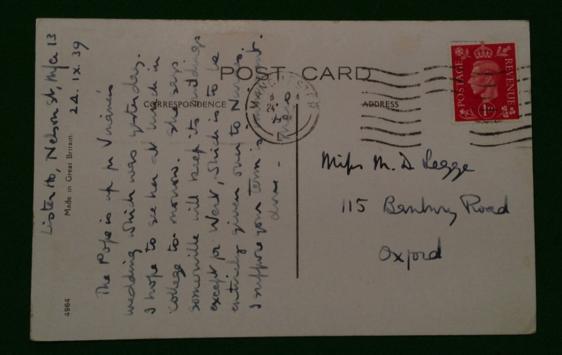 POST CARD
CORRESPONDENCE
ADDRESS
POSTAGE
REVENUE
Miss M. D. Legge
115 Banbury Road
Oxford
Made in Great Britain
4964
Lister Ho Nelson St, M/cr 13
24. IX. 39
The Pope is up for
wedding which was yesterday.
I hope to see her at lunch in
College to-morrow. She says
Somerville will keep its buildings
except for West, which is to be
entirely given over to Nurses.
I suppose your term is